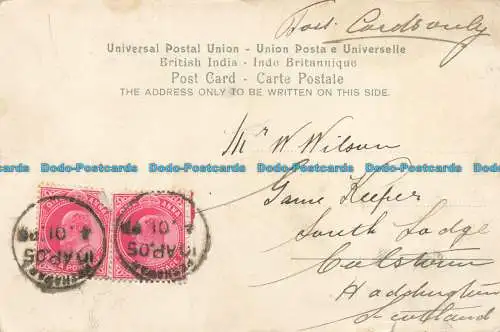 Post Cards only
Universal Postal Union - Union Posta e Universelle
British India - Inde Britannique
Post Card - Carte Postale
THE ADDRESS ONLY TO BE WRITTEN ON THIS SIDE.
Mr W Wilson
Game Keeper
South Lodge
Haddington
Scotland
ANNA
10 AP.05
10 AP.05
Dodo-Postcards Dodo-Postcards Dodo-Postcards Dodo-Postcards Dodo-Postcards